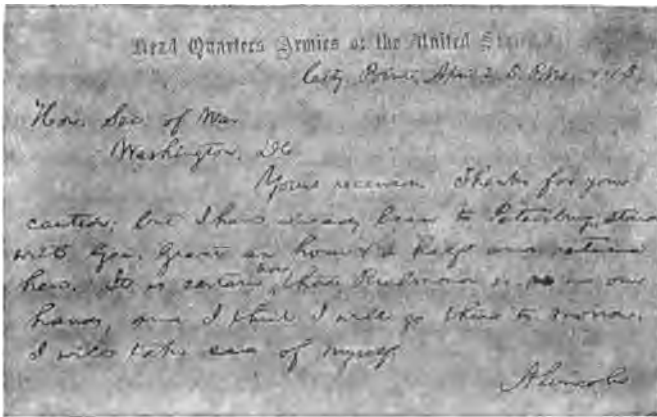 Head Quarters Armies of the United States,
City Point, April 5 P.M. 1865
Hon. Sec. of War
Washington, D.C.
Yours received. Thanks for your
caution; but I have already been to Petersburg, staid
with Gen. Grant an hour & a half and returned
here. It is certain now that Richmond is in our
hands, and I think I will go there to-morrow.
I will take care of myself.
A. Lincoln